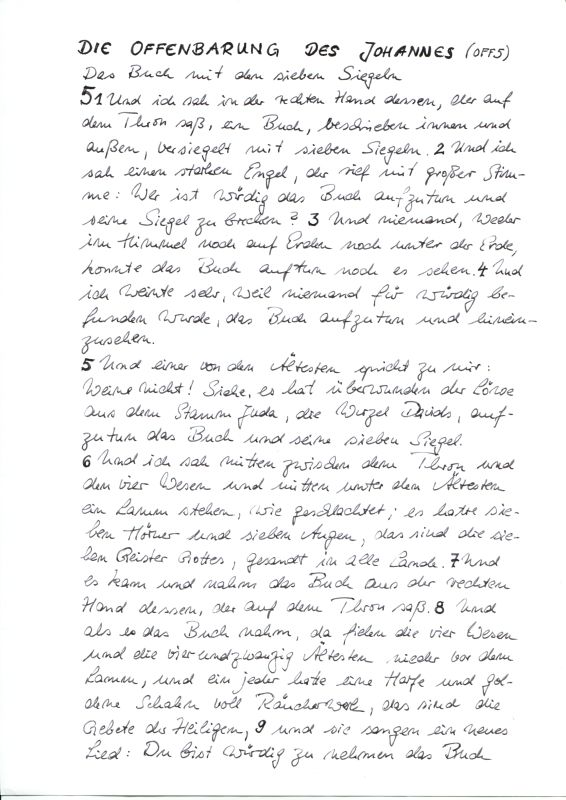 DIE OFFENBARUNG DES JOHANNES (OFF5)
Das Buch mit den sieben Siegeln
51 Und ich sah in der rechten Hand dessen, der auf
dem Thron saß, ein Buch, beschrieben innen und
außen, versiegelt mit sieben Siegeln. 2 Und ich
sah einen starken Engel, der rief mit großer Stim-
me: Wer ist würdig das Buch aufzutun und
seine Siegel zu brechen? 3 Und niemand, weder
im Himmel noch auf Erden noch unter der Erde,
konnte das Buch auftun noch es sehen. 4 Und
ich weinte sehr, weil niemand für würdig be-
funden wurde, das Buch aufzutun und hinein-
zusehen.
5 Und einer von den Ältesten spricht zu mir:
Weine nicht! Siehe, es hat überwunden der Löwe
aus dem Stamm Juda, die Wurzel Davids, auf-
zutun das Buch und seine sieben Siegel.
6 Und ich sah mitten zwischen dem Thron und
den vier Wesen und mitten unter den Ältesten
ein Lamm stehen, wie geschlachtet; es hatte sie-
ben Hörner und sieben Augen, das sind die sie-
ben Geister Gottes, gesandt in alle Lande. 7 Und
es kam und nahm das Buch aus der rechten
Hand dessen, der auf dem Thron saß. 8 Und
als es das Buch nahm, da fielen die vier Wesen
und die vierundzwanzig Ältesten nieder vor dem
Lamm, und ein jeder hatte eine Harfe und gol-
dene Schalen voll Räucherwerk, das sind die
Gebete der Heiligen, 9 und sie sangen ein neues
Lied: Du bist würdig zu nehmen das Buch